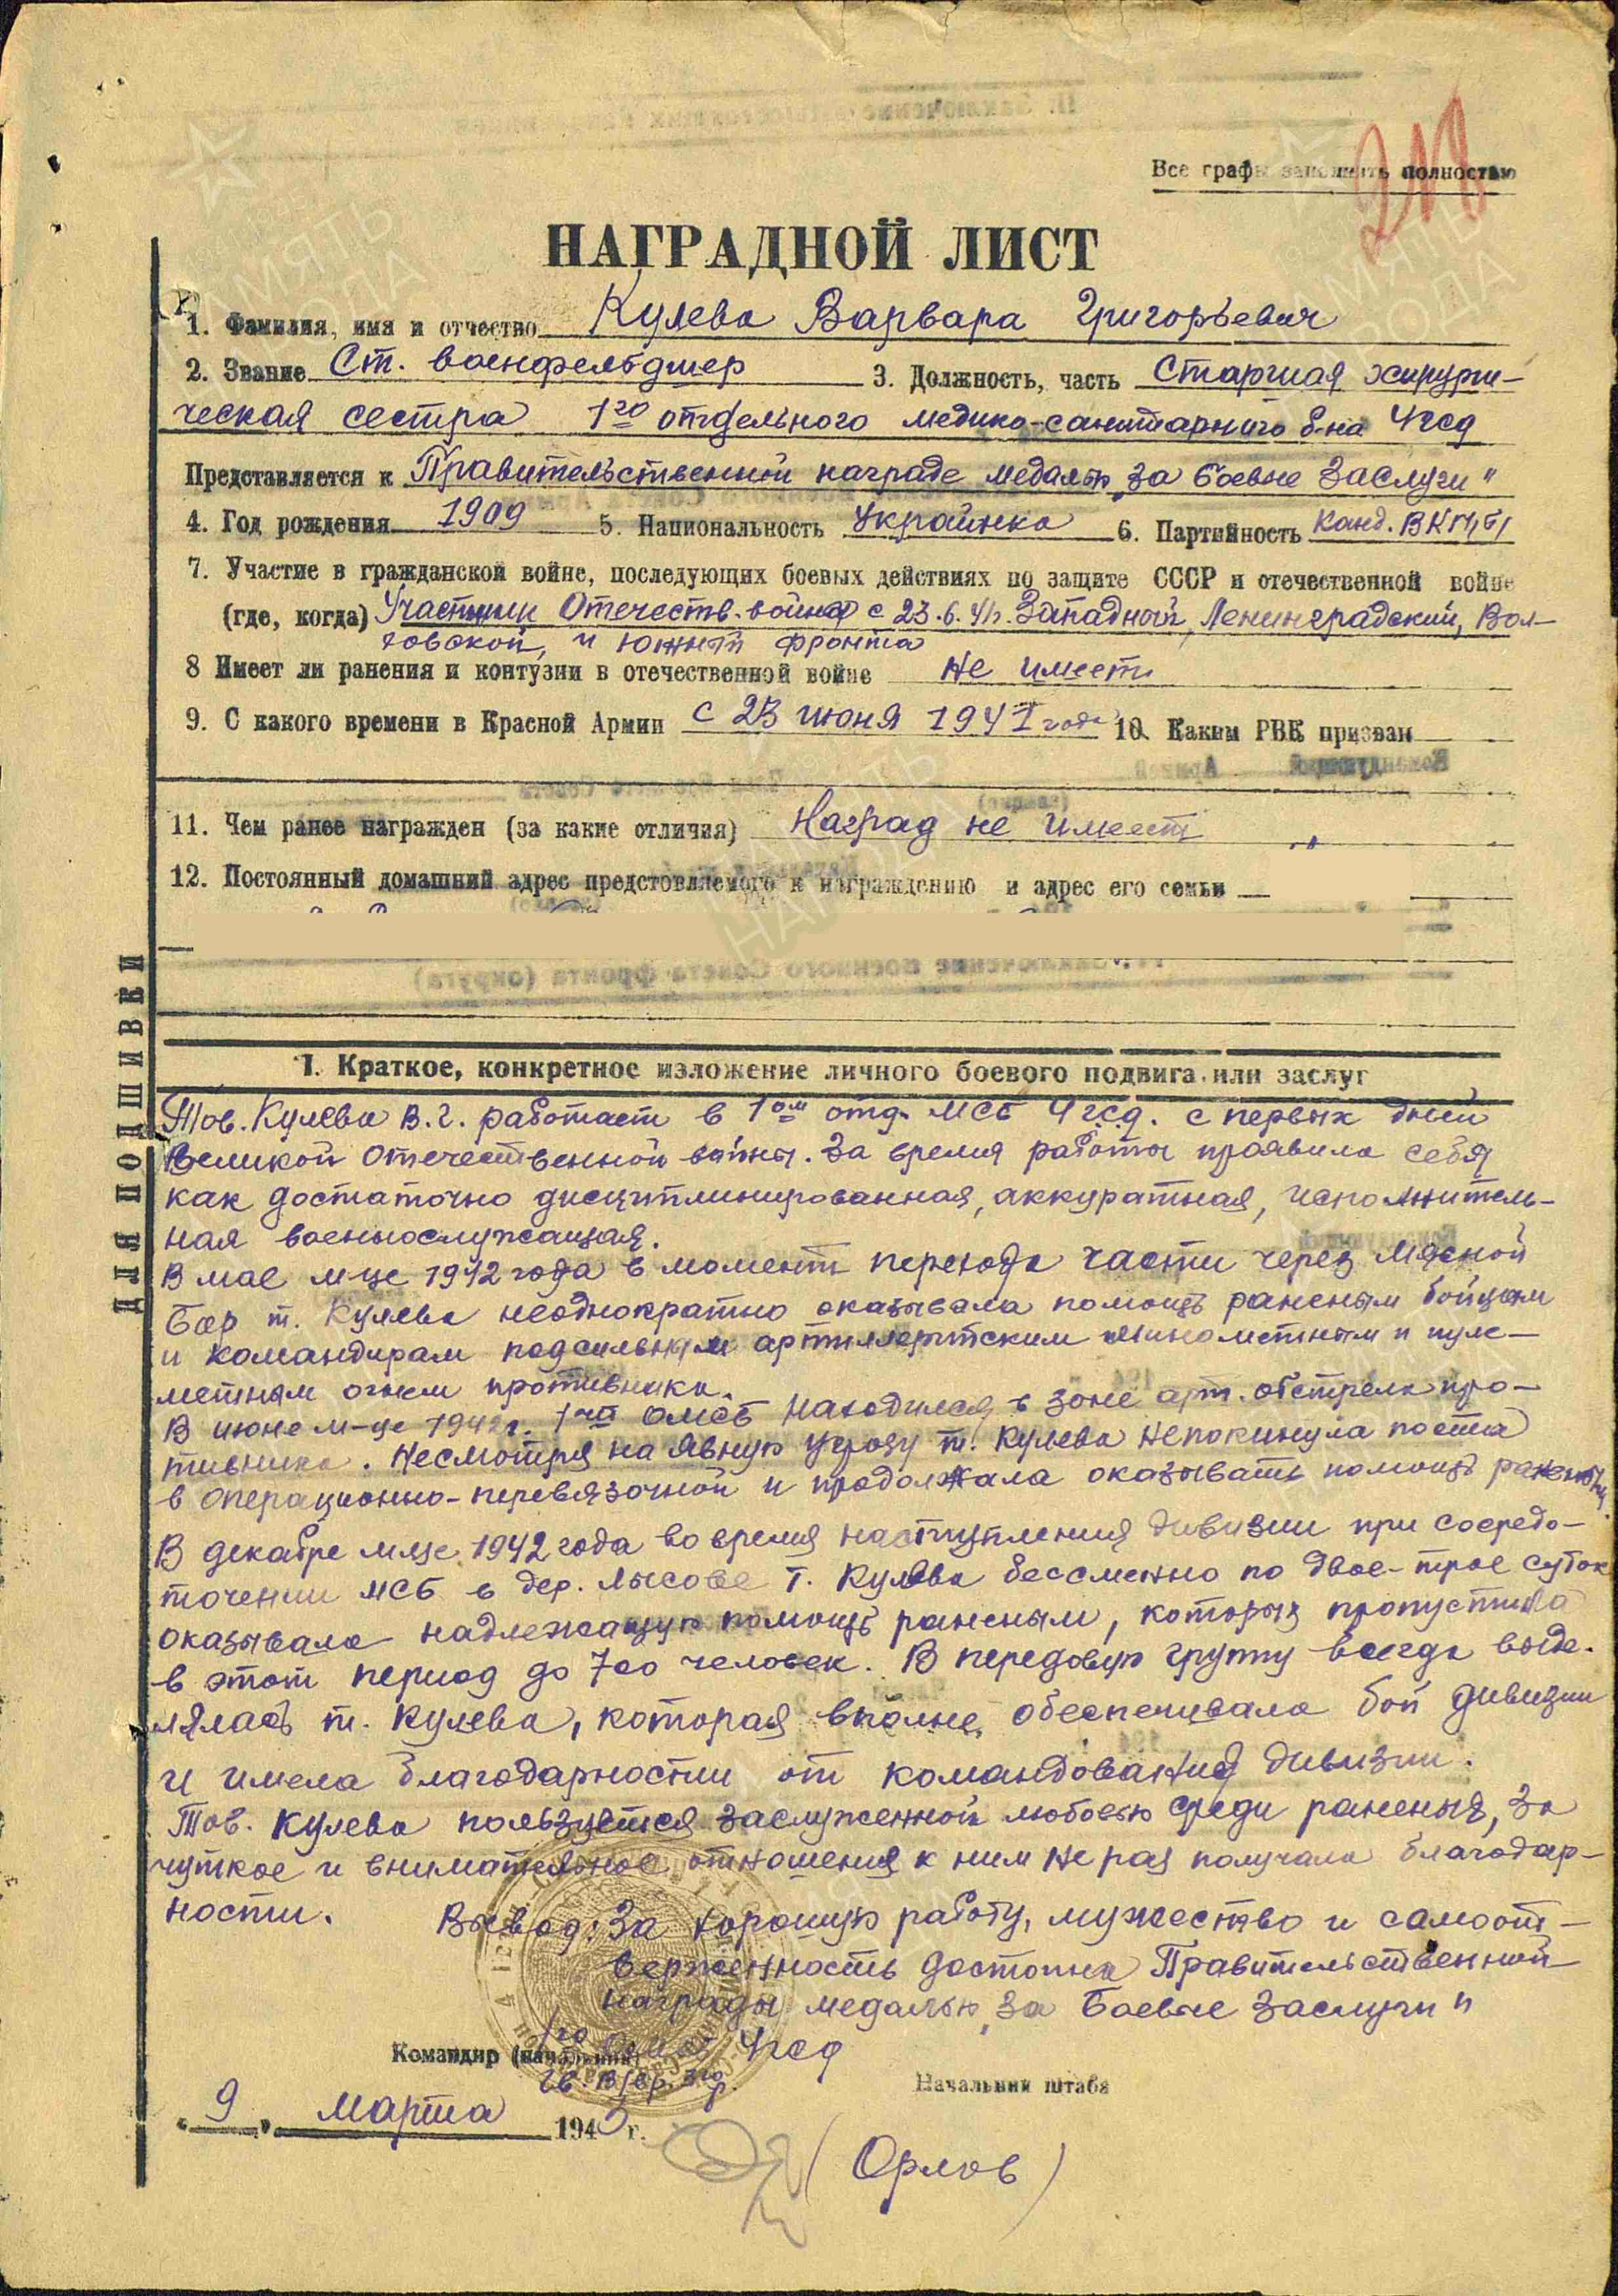 Все графы заполнять полностью
НАГРАДНОЙ ЛИСТ
1. Фамилия, имя и отчество Кулева Варвара Григорьевич
2. Звание Ст. военфельдшер 3. Должность, часть Старшая хирурги-
ческая сестра 1го отдельного медико-санитарного б-на 4гсд
Представляется к Правительственной награде медалью „За боевые заслуги"
4. Год рождения 1909 5. Национальность Украинка 6. Партийность Канд. ВКП(б)
7. Участие в гражданской войне, последующих боевых действиях по защите СССР и отечественной войне
(где, когда) Участник Отечеств. войны с 23.6.41г. Западный, Ленинградский, Вол-
ховской, и Южный фронта
8 Имеет ли ранения и контузии в отечественной войне Не имеет
9. С какого времени в Красной Армии с 23 июня 1941 года 10. Каким РВК призван
11. Чем ранее награжден (за какие отличия) Наград не имеет
12. Постоянный домашний адрес предстовляемого к награждению и адрес его семьи
ДЛЯ ПОДШИВКИ
I. Краткое, конкретное изложение личного боевого подвига или заслуг
Тов. Кулева В.Г. работает в 1ом отд. МСБ 4 гсд. с первых дней
Великой Отечественной войны. За время работы проявила себя
как достаточно дисциплинированная, аккуратная, исполнитель-
ная военнослужащая.
В мае м-це 1942 года в момент перехода части через Мясной
Бор т. Кулева неоднократно оказывала помощь раненым бойцам
и командирам под сильным артиллерийским минометным и пуле-
метным огнем противника.
В июне м-це 1942 г. 1ый ОМСБ находился в зоне арт. обстрела про-
тивника. Несмотря на явную угрозу т. Кулева не покинула поста
в операционно-перевязочной и продолжала оказывать помощь раненым.
В декабре м-це 1942 года во время наступления дивизии при сосредо-
точении МСБ в дер. Лысове т. Кулева бессменно по двое-трое суток
оказывала надлежащую помощь раненым, которых пропустила
в этот период до 700 человек. В передовую группу всегда выде-
лялась т. Кулева, которая вполне обеспечивала бой дивизии
и имела благодарности от командования дивизии.
Тов. Кулева пользуется заслуженной любовью среди раненых, за
чуткое и внимательное отношения к ним не раз получала благодар-
ности.
Вывод: За хорошую работу, мужество и самоот-
верженность достойна Правительственной
награды медалью „за Боевые заслуги"
Командир (начальник) 1го ОМСБ 4гсд
Гв. В/вр. 3го р.
Начальник штаба
„9" марта 1943 г.
(Орлов)
ПАМЯТЬ
НАРОДА